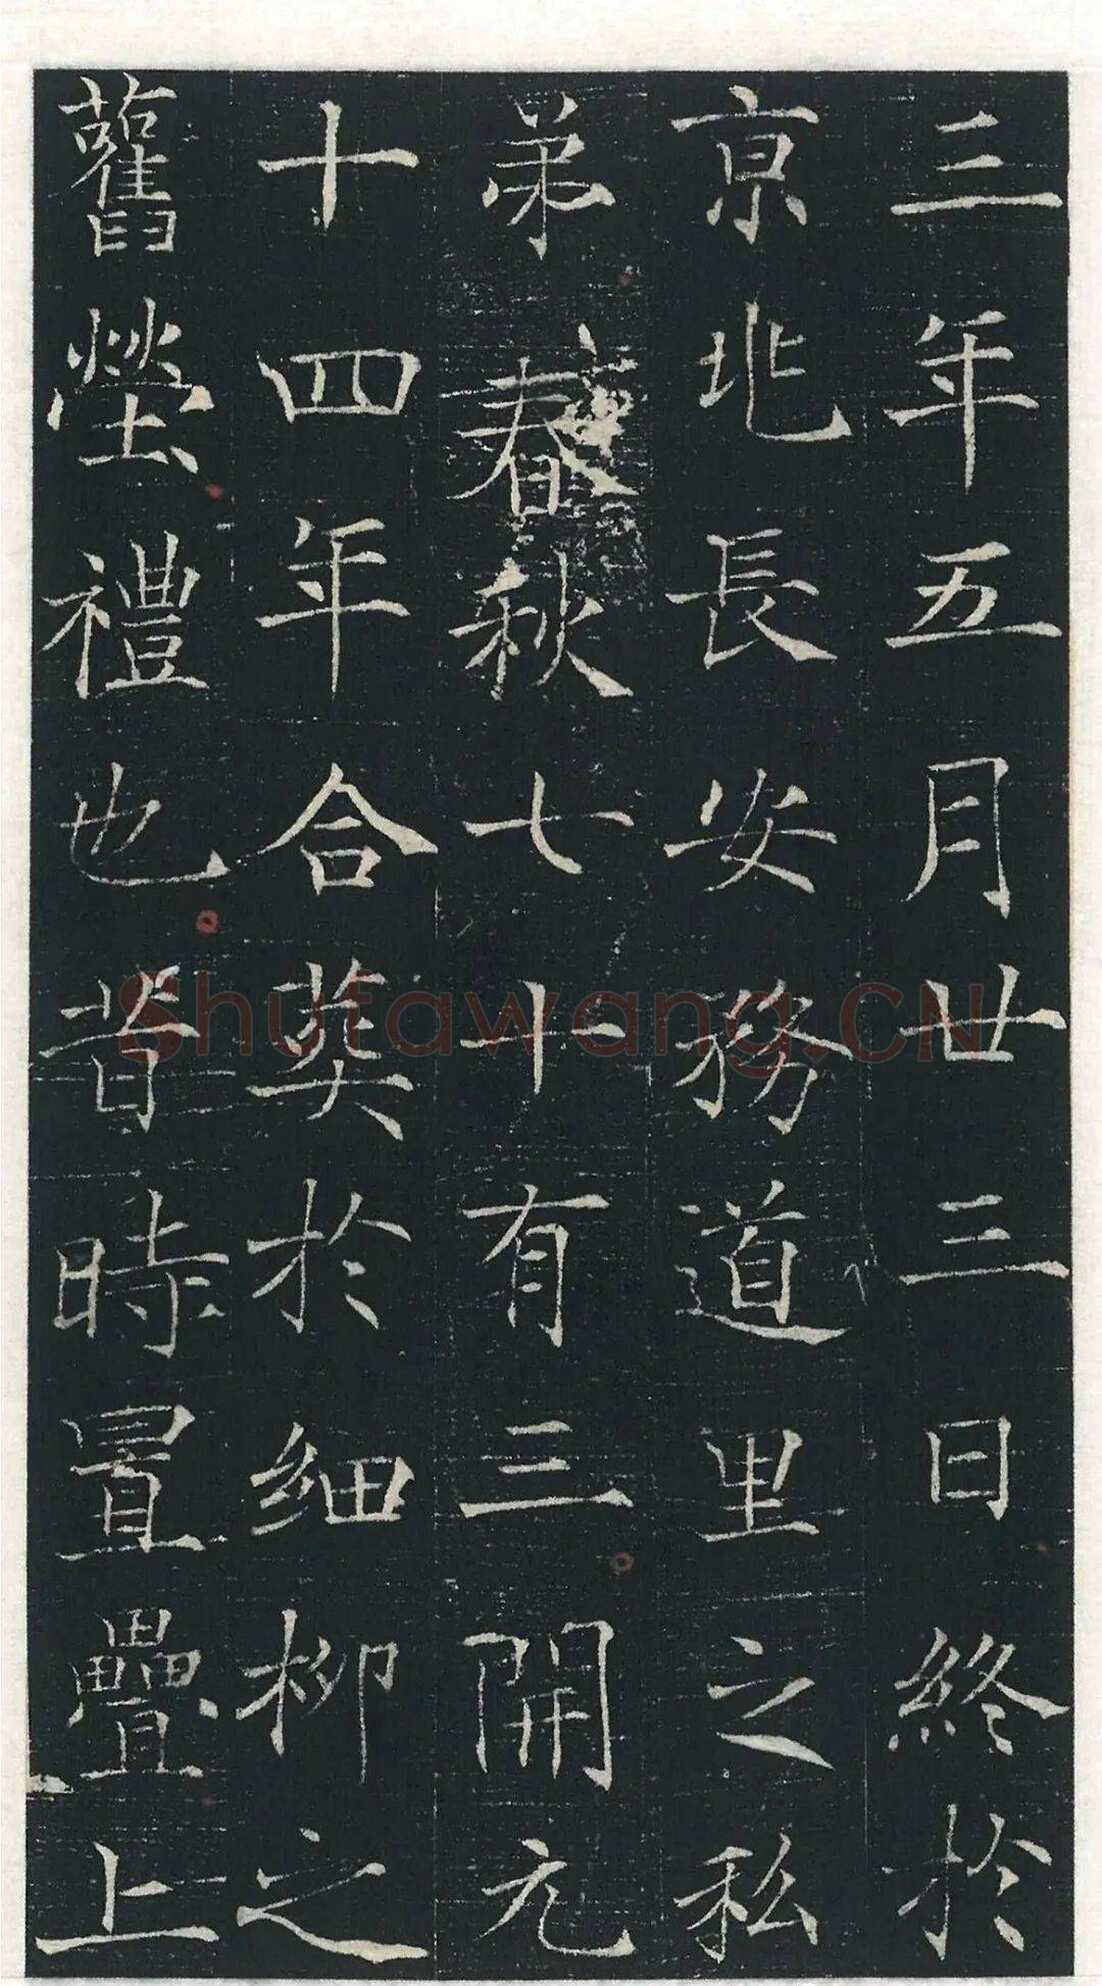 三年五月廿三日終於
京兆長安務道里之私
弟春秋七十有三開元
十四年合葬於細柳之
舊塋禮也昔時置疊上
Shufawang.CN